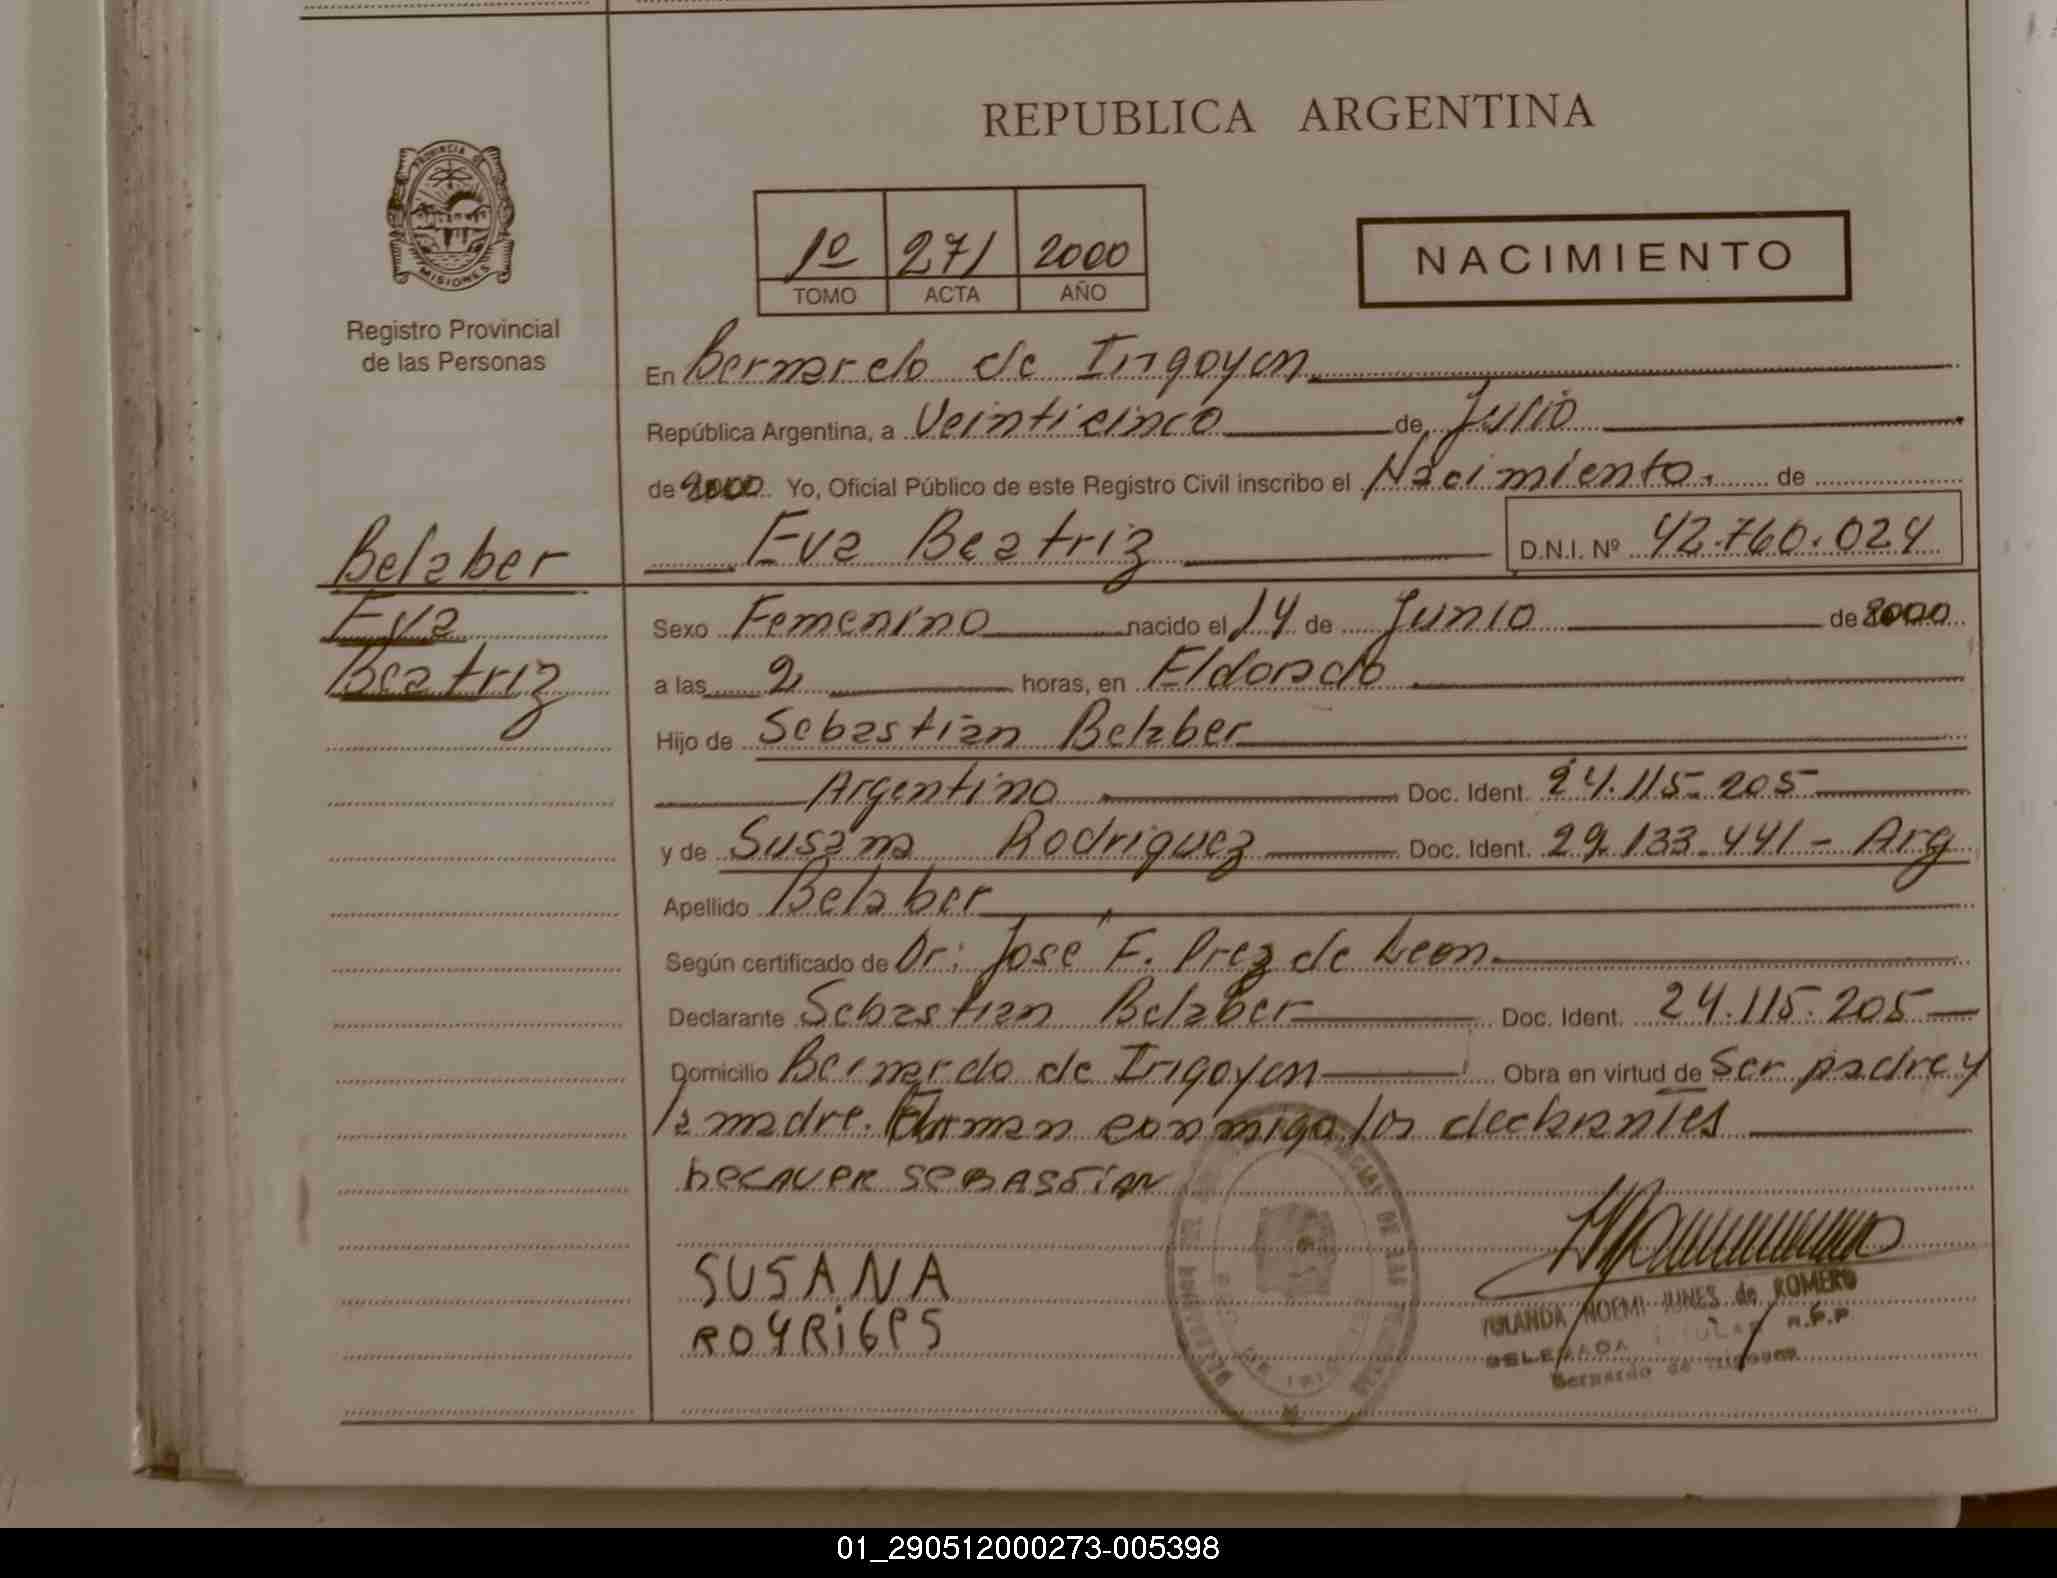 REPUBLICA ARGENTINA
PROVINCIA DE
MISIONES
Registro Provincial
de las Personas
1º 271 2000
TOMO ACTA AÑO
NACIMIENTO
En Bernardo de Irigoyen
República Argentina, a Veinticinco de Julio
de 2000 Yo, Oficial Público de este Registro Civil inscribo el Nacimiento. de
Eva Beatriz D.N.I. Nº 42.760.024
Belaber
Eva
Beatriz
Sexo Femenino nacido el 14 de Junio de 2000
a las 2 horas, en Eldorado
Hijo de Sebastián Belaber
Argentino Doc. Ident. 24.115.205
y de Susana Rodriguez Doc. Ident. 29.133.441 - Arg
Apellido Belaber
Según certificado de Dr: José F. Prez de Leon
Declarante Sebastian Belaber Doc. Ident. 24.115.205
Domicilio Bernardo de Irigoyen Obra en virtud de Ser padre y
la madre. Firman conmigo los declarantes
SEBASTIAN
SUSANA
ROYRIGES
YOLANDA NOEMI JUNES de ROMERO
DELEGADA TITULAR R.P.P
Bernardo de Irigoyen
01_290512000273-005398